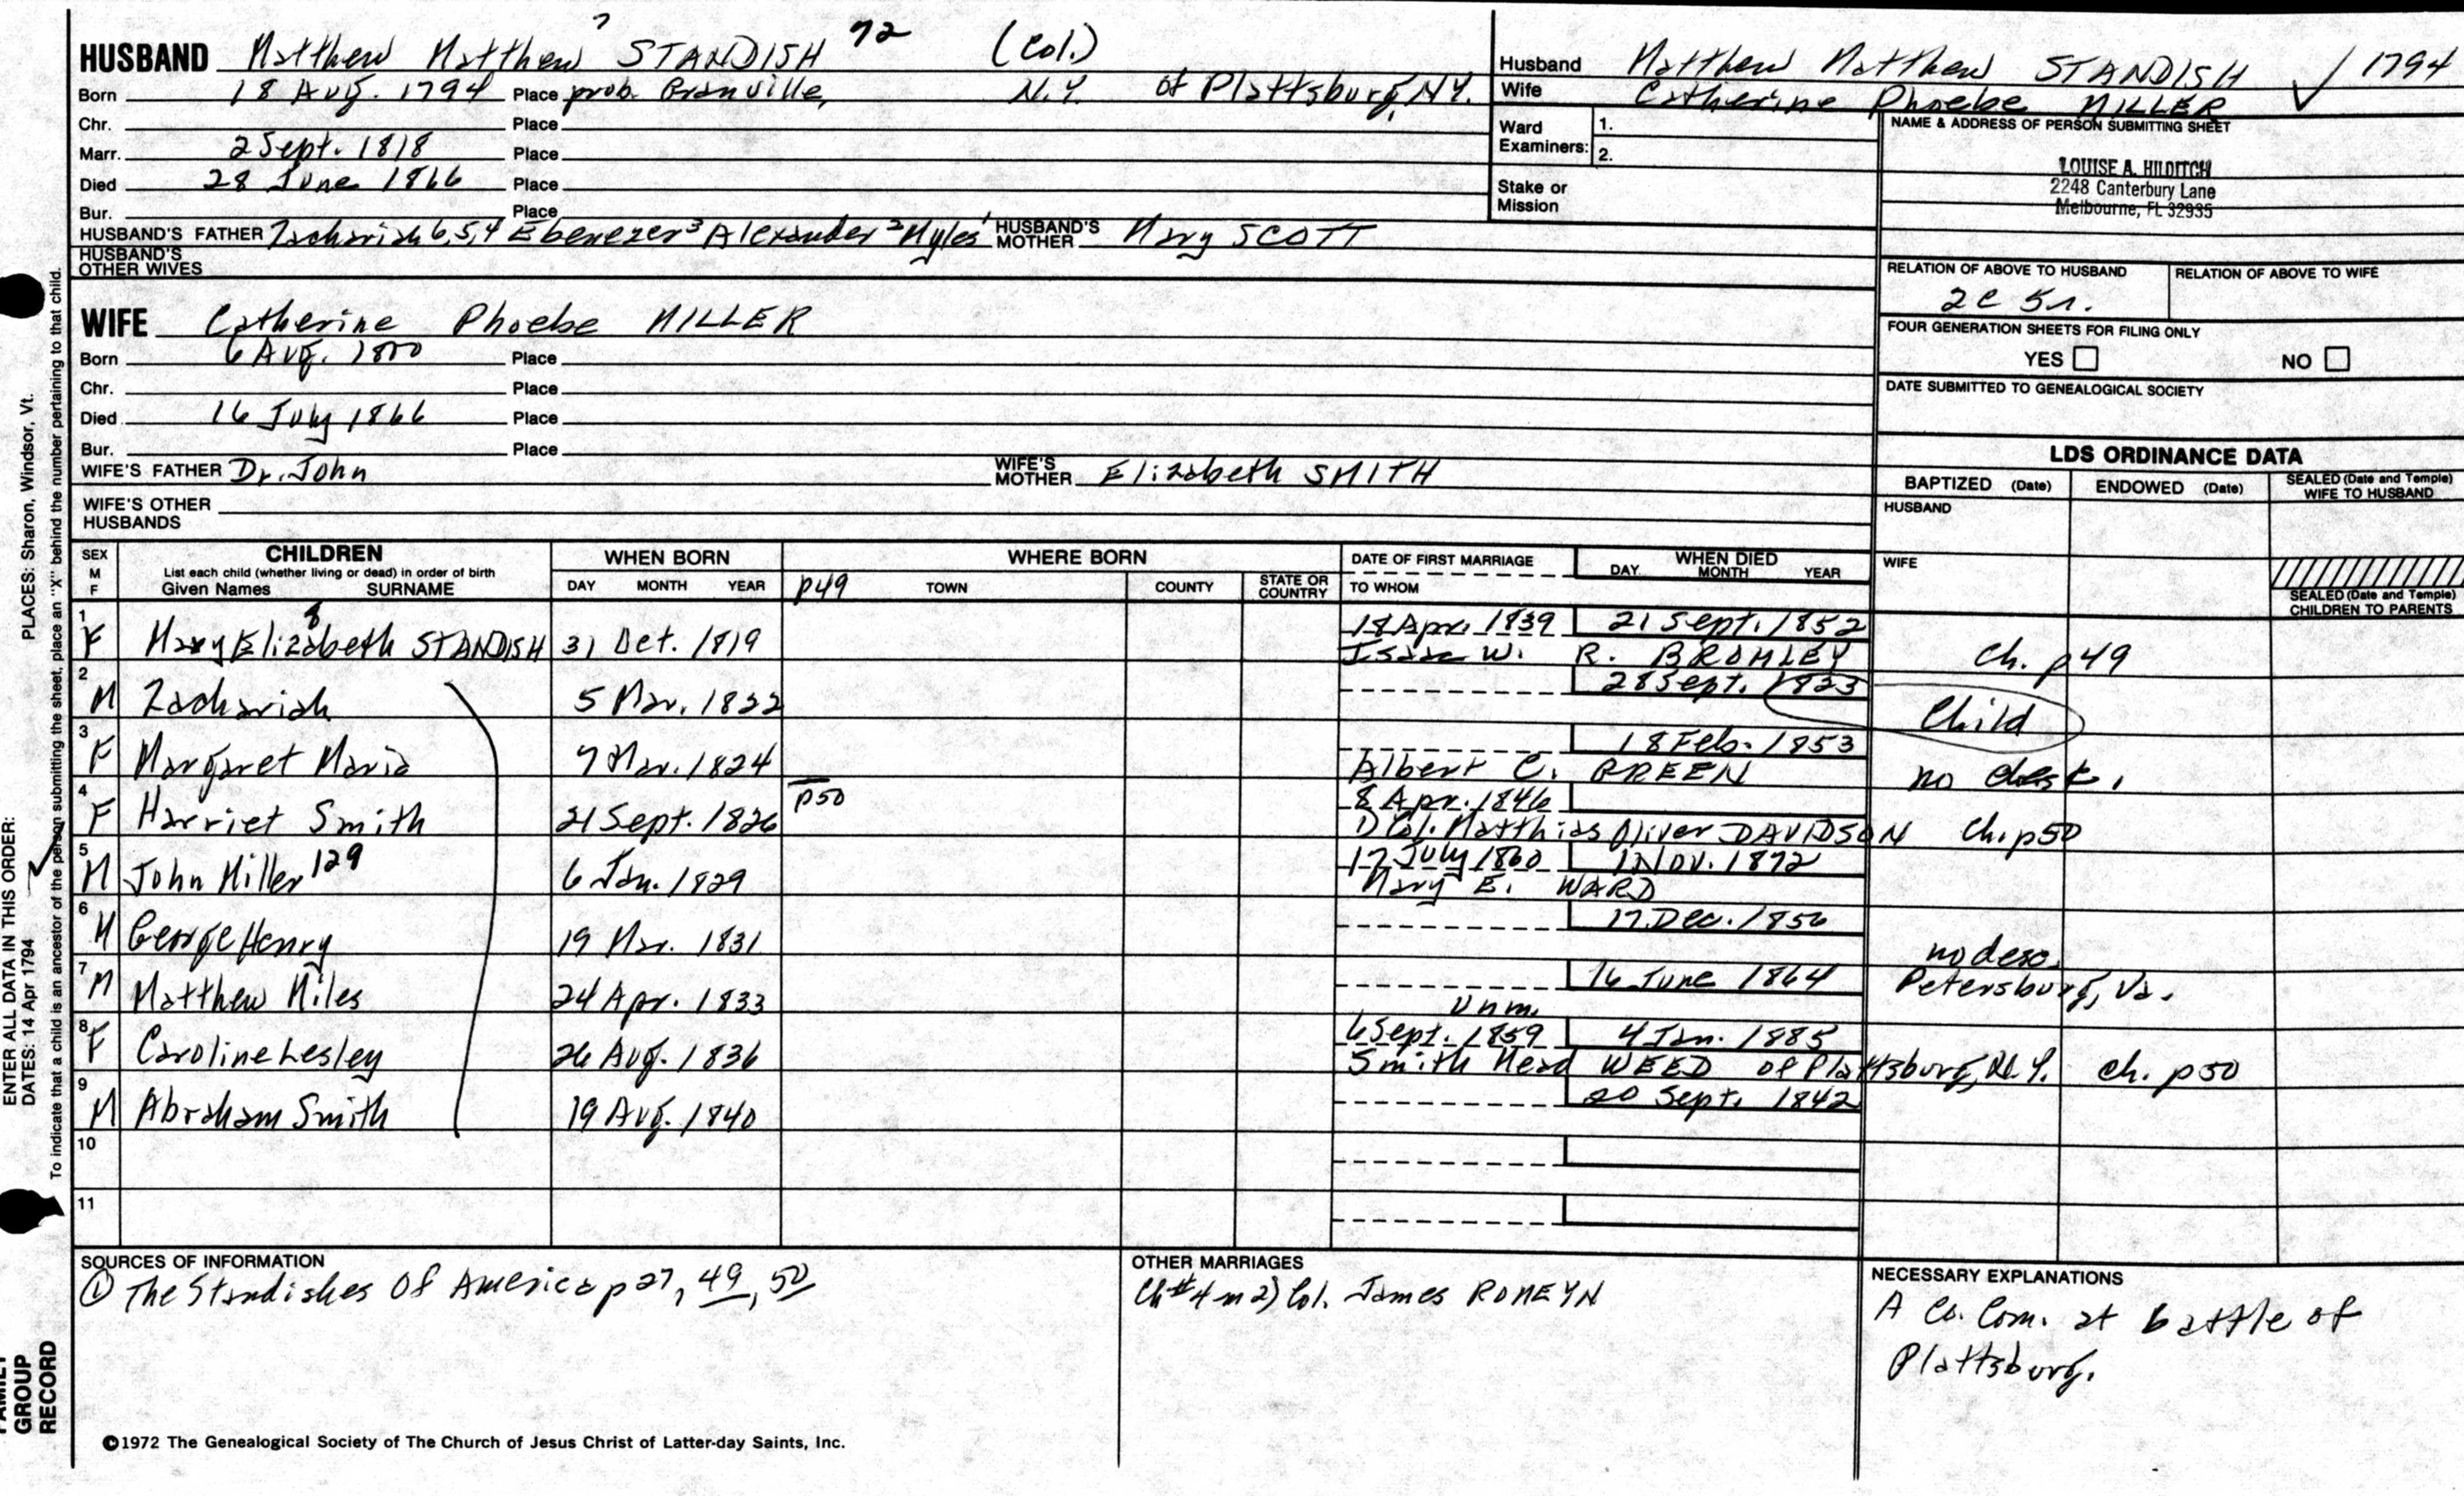 HUSBAND Matthew Matthew 7 STANDISH 72 (Col.)
Born 18 Aug. 1794 Place prob. Granville, N.Y. of Plattsburg, N.Y.
Chr. Place
Marr. 2 Sept. 1818 Place
Died 28 June 1866 Place
Bur. Place
HUSBAND'S FATHER Zachariah 6,5,4 Ebenezer 3 Alexander 2 Myles 1 HUSBAND'S MOTHER Mary SCOTT
HUSBAND'S OTHER WIVES
Husband Matthew Matthew STANDISH ✓ 1794
Wife Catherine Phoebe MILLER
Ward Examiners: 1.
2.
Stake or Mission
NAME & ADDRESS OF PERSON SUBMITTING SHEET
LOUISE A. HILDITCH
2248 Canterbury Lane
Melbourne, FL 32935
RELATION OF ABOVE TO HUSBAND RELATION OF ABOVE TO WIFE
2c 5r.
FOUR GENERATION SHEETS FOR FILING ONLY
YES NO
DATE SUBMITTED TO GENEALOGICAL SOCIETY
WIFE Catherine Phoebe MILLER
Born 6 Aug. 1800 Place
Chr. Place
Died 16 July 1866 Place
Bur. Place
WIFE'S FATHER Dr. John WIFE'S MOTHER Elizabeth SMITH
WIFE'S OTHER HUSBANDS
LDS ORDINANCE DATA
BAPTIZED (Date) ENDOWED (Date) SEALED (Date and Temple) WIFE TO HUSBAND
HUSBAND
WIFE
SEALED (Date and Temple) CHILDREN TO PARENTS
SEX M F CHILDREN List each child (whether living or dead) in order of birth Given Names SURNAME WHEN BORN DAY MONTH YEAR WHERE BORN p49 TOWN COUNTY STATE OR COUNTRY DATE OF FIRST MARRIAGE TO WHOM WHEN DIED DAY MONTH YEAR
8
1 F Mary Elizabeth STANDISH 31 Oct. 1819 18 Apr. 1839 21 Sept. 1852
Isaac W. R. BROMLEY Ch. p49
2 M Zachariah 5 Mar. 1822 28 Sept. 1823 Child
3 F Margaret Maria 7 Mar. 1824 18 Feb. 1853
Albert C. GREEN no desc.
4 F Harriet Smith 21 Sept. 1826 p50 8 Apr. 1846
1) Col. Matthias Oliver DAVIDSON Ch. p50
5 M John Miller 129 6 Jan. 1829 17 July 1860 1 Nov. 1872
Mary E. WARD
6 M George Henry 19 Mar. 1831 17 Dec. 1850
no desc.
7 M Matthew Miles 24 Apr. 1833 16 June 1864 Petersburg, Va.
Unm.
8 F Caroline Lesley 26 Aug. 1836 6 Sept. 1859 4 Jan. 1885
Smith Mead WEED of Plattsburg, N.Y. Ch. p50
9 M Abraham Smith 19 Aug. 1840 20 Sept. 1842
10
11
SOURCES OF INFORMATION
① The Standishes Of America p 27, 49, 50
OTHER MARRIAGES
Ch #4 m 2) Col. James ROMEYN
NECESSARY EXPLANATIONS
A Co. Com. at battle of
Plattsburg.
©1972 The Genealogical Society of The Church of Jesus Christ of Latter-day Saints, Inc.
GROUP
RECORD
ENTER ALL DATA IN THIS ORDER:
DATES: 14 Apr 1794 PLACES: Sharon, Windsor, Vt.
To indicate that a child is an ancestor of the person submitting the sheet, place an "X" behind the number pertaining to that child.